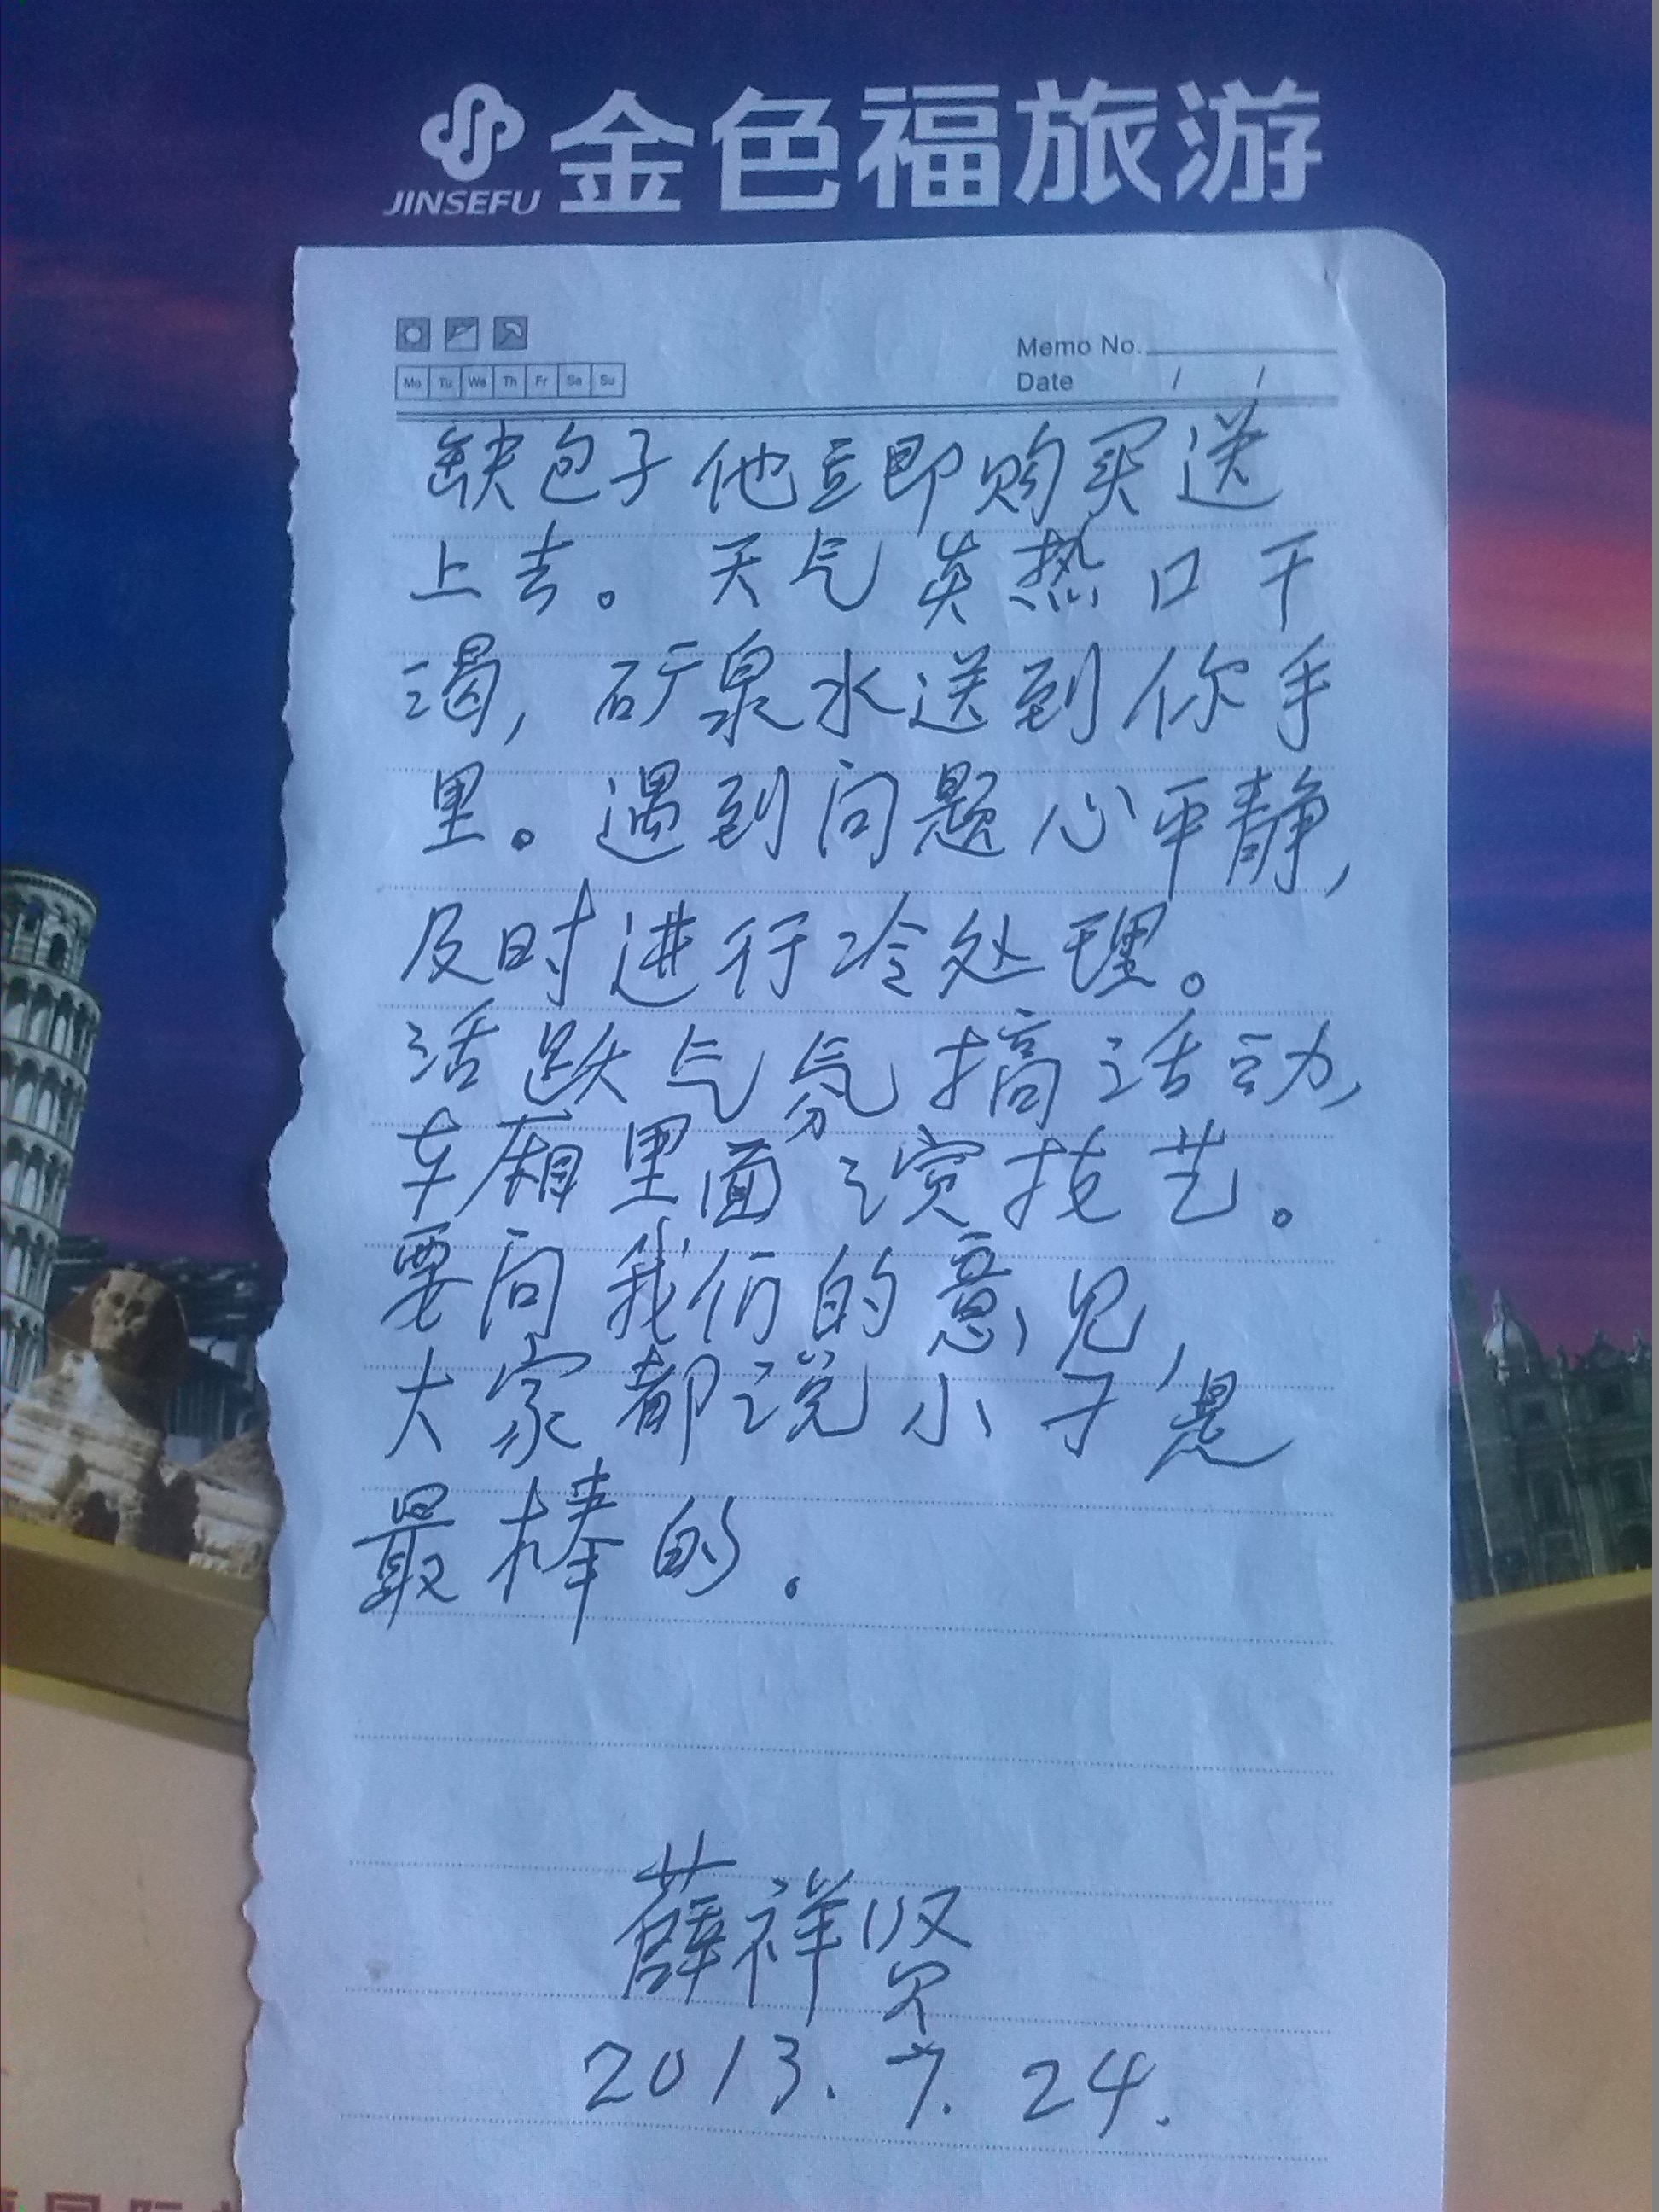 JINSEFU 金色福旅游
Mo Tu We Th Fr Sa Su
Memo No.
Date / /
缺包子他立即购买送
上去。天气炎热口干
渴，矿泉水送到你手
里。遇到问题心平静，
及时进行冷处理。
活跃气氛搞活动，
车厢里面演技艺。
要问我们的意见，
大家都说小于是
最棒的.
薛祥贤
2013.7.24.